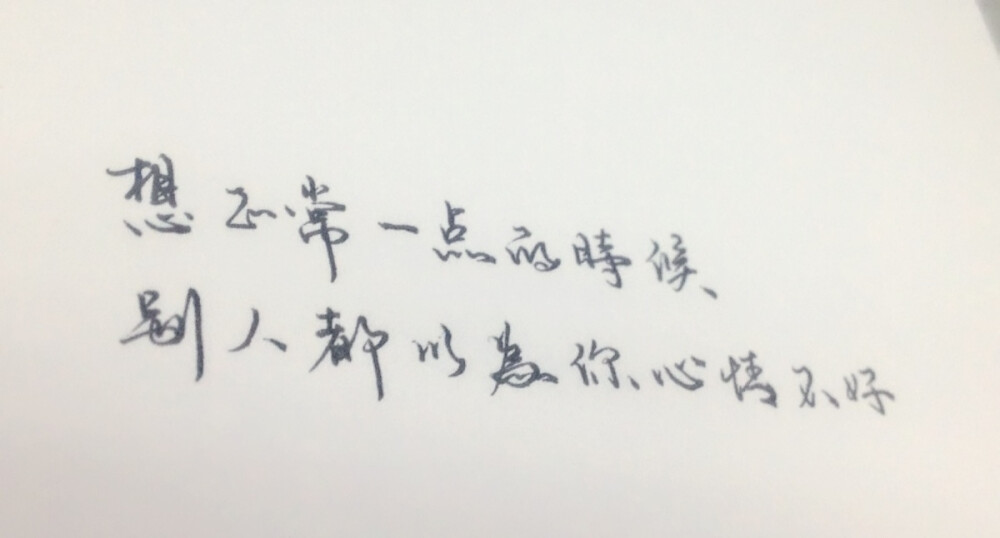 想正常一点的時候、
别人都以為你心情不好